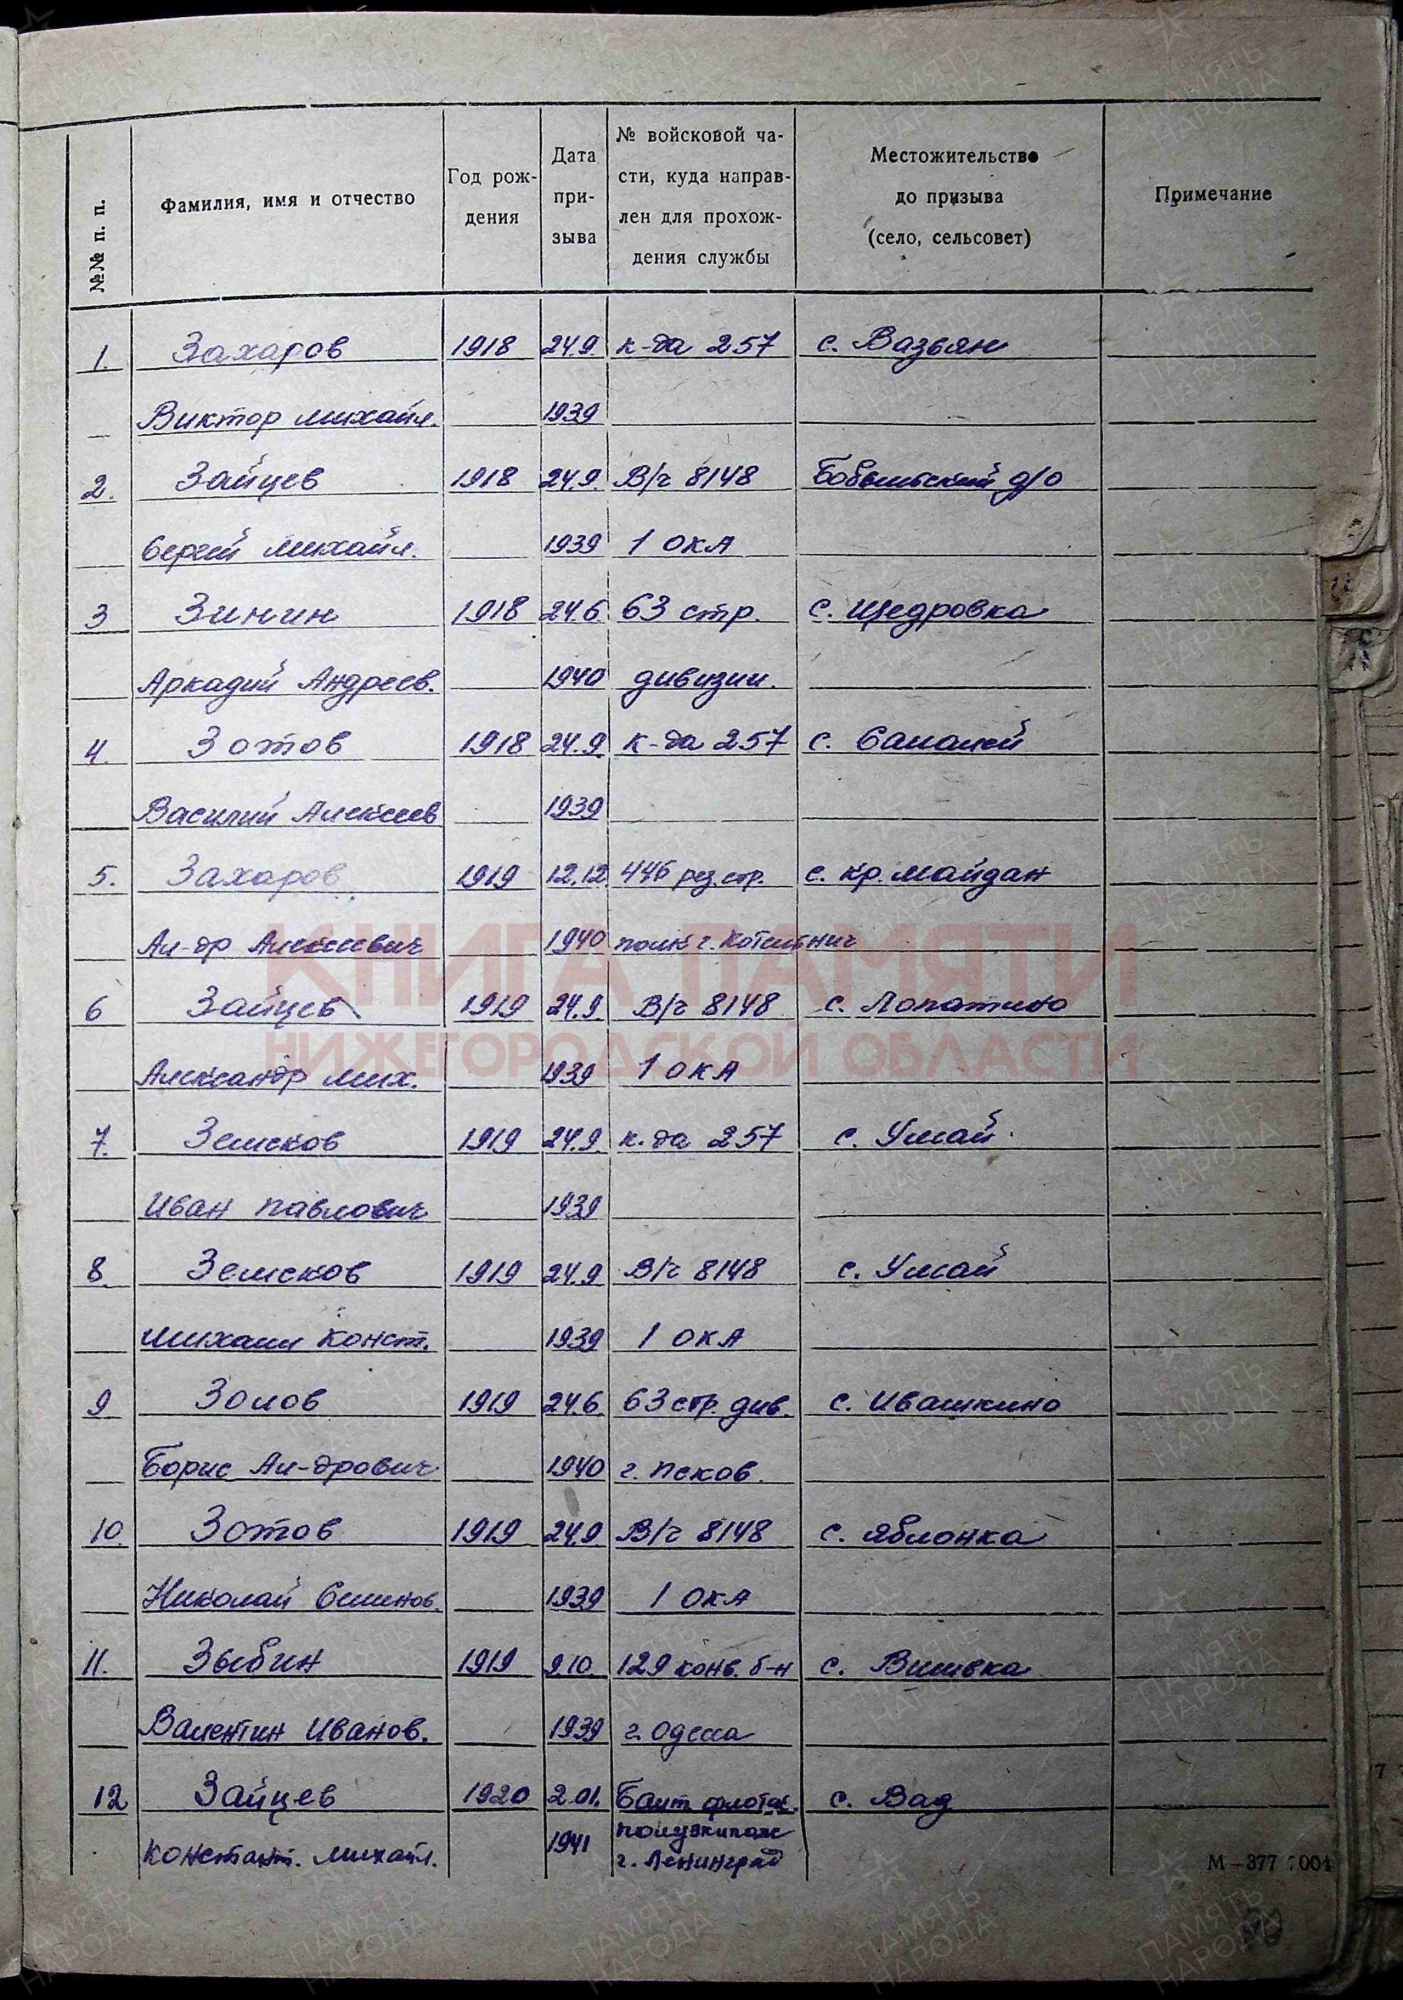 №№ п. п.
Фамилия, имя и отчество
Год рож-
дения
Дата
при-
зыва
№ войсковой ча-
сти, куда направ-
лен для прохож-
дения службы
Местожительство
до призыва
(село, сельсовет)
Примечание
1. Захаров 1918 24.9. к-да 257 с. Вазьян
Виктор Михайл. 1939
2. Зайцев 1918 24.9. В/ч 8148 Бобыльский д/о
Сергей Михайл. 1939 1 ОКА
3 Зинин 1918 24.6. 63 стр. с. Щедровка
Аркадий Андреев. 1940 дивизии.
4. Зотов 1918 24.9. к-да 257 с. Салалей
Василий Алексеев 1939
5. Захаров 1919 12.12. 446 рез. стр. с. Кр. Майдан
Ал-др Алексеевич 1940 полк г. Котельнич
6 Зайцев 1919 24.9. В/ч 8148 с. Лопатино
Александр Мих. 1939 1 ОКА
7. Земсков 1919 24.9. к-да 257 с. Умай
Иван Павлович 1939
8. Земсков 1919 24.9 В/ч 8148 с. Умай
Михаил Конст. 1939 1 ОКА
9 Золов 1919 24.6. 63 стр. див. с. Ивашкино
Борис Ал-дрович 1940 г. Псков.
10. Зотов 1919 24.9 В/ч 8148 с. Яблонка
Николай Семенов. 1939 1 ОКА
11. Зыбин 1919 9.10. 129 конв. б-н с. Вишевка
Валентин Иванов. 1939 г. Одесса
12 Зайцев 1920 2.01. Балт. флотск. с. Вад
Констант. Михайл. 1941 полуэкипаж
г. Ленинград
КНИГА ПАМЯТИ
НИЖЕГОРОДСКОЙ ОБЛАСТИ
ПАМЯТЬ
НАРОДА